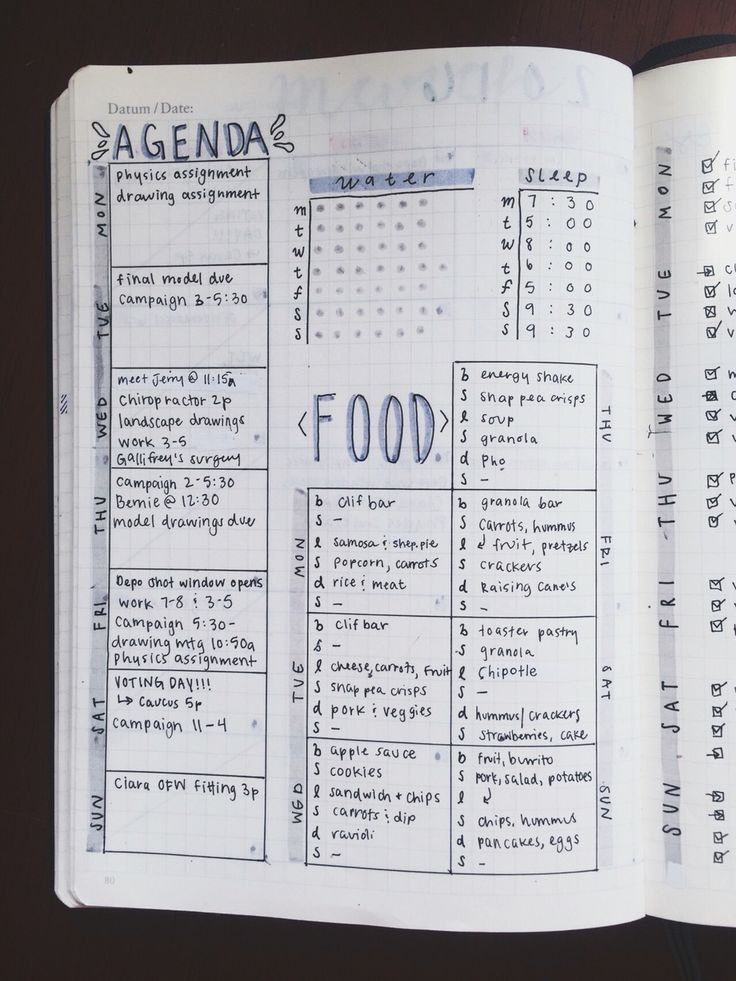 Datum / Date:
AGENDA
MON
physics assignment
drawing assignment
TUE
final model due
Campaign 3-5:30
WED
meet Jerry @ 11:15a
Chiropractor 2p
landscape drawings
work 3-5
Gallifrey's surgery
THU
Campaign 2-5:30
Bernie @ 12:30
model drawings due
FRI
Depo shot window opens
work 7-8 & 3-5
Campaign 5:30-
drawing mtg 10:50a
physics assignment
SAT
VOTING DAY!!!
↳ Caucus 5p
campaign 11-4
SUN
Ciara OFW fitting 3p
water
m
t
w
t
f
s
s
sleep
m 7:30
t 5:00
w 8:00
t 6:00
f 5:00
s 9:30
s 9:30
<FOOD>
MON
b clif bar
s –
l samosa & shep. pie
s popcorn, carrots
d rice & meat
s –
TUE
b clif bar
s –
l cheese, carrots, fruit
s snap pea crisps
d pork & veggies
s –
WED
b apple sauce
s cookies
l sandwich + chips
s carrots & dip
d ravioli
s –
THU
b energy shake
s snap pea crisps
l soup
s granola
d pho
s –
FRI
b granola bar
s carrots, hummus
l ↲ fruit, pretzels
s crackers
d Raising Cane's
s –
SAT
b toaster pastry
s granola
l Chipotle
s –
d hummus/crackers
s strawberries, cake
SUN
b fruit, burrito
s pork, salad, potatoes
l ↲
s chips, hummus
d pancakes, eggs
s –
80
MON
TUE
WED
THU
FRI
SAT
SUN